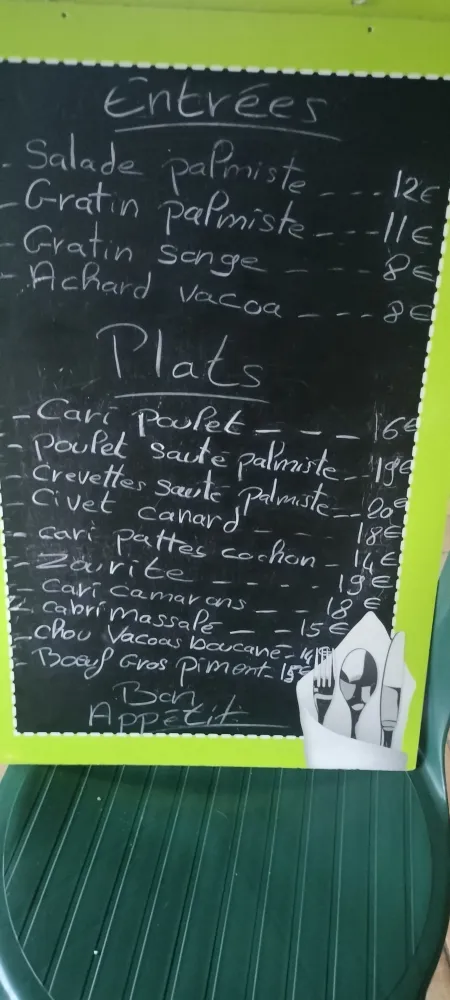 Entrées
- Salade palmiste --- 12€
- Gratin palmiste --- 11€
- Gratin songe ---- 8€
- Achard vacoa --- 8€
Plats
- Cari poulet --- 16€
- Poulet sauté palmiste -- 19€
- Crevettes sauté palmiste -- 20€
- Civet canard --- 18€
- cari pattes cochon - 14€
- Zourite ---- 19€
- cari camarons -- 18€
- cabri massalé -- 15€
- chou vacoas boucané -
- Boeuf Gros piment - 15€
Bon
Appétit